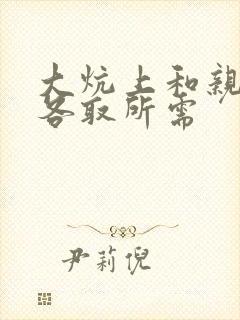 大炕上和亲
各取所需
尹莉倪